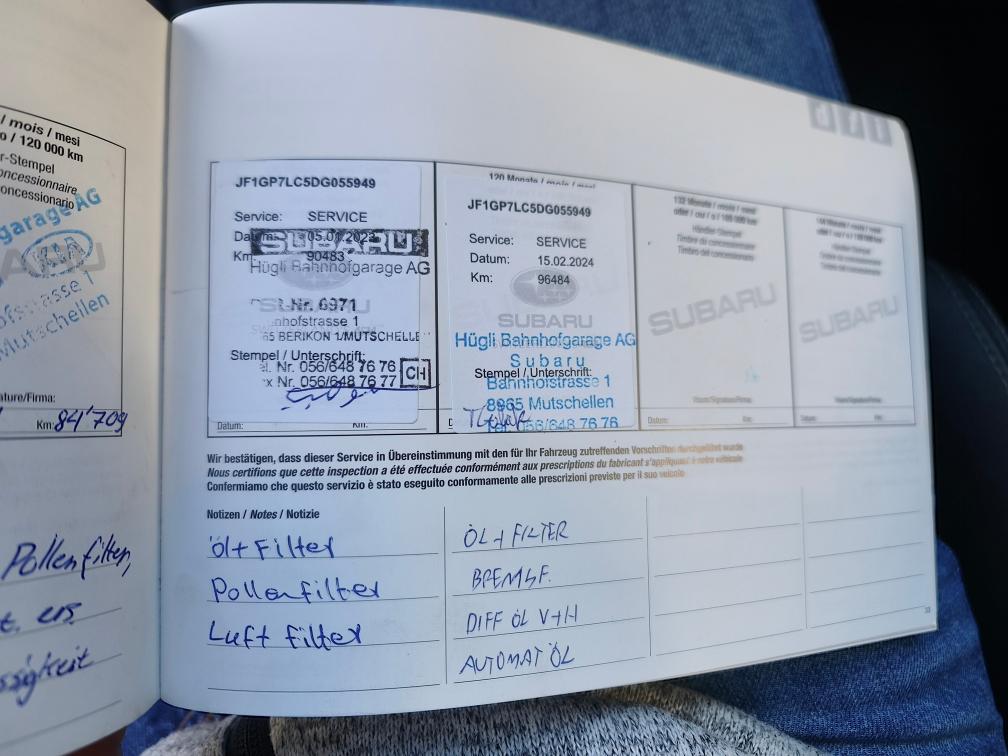 / mois / mesi
/ 120 000 km
r-Stempel
concessionnaire
concessionario
garage AG
SUBARU
fstrasse 1
Mutschellen
ature/Firma:
Km: 84'709
Pollenfilter,
ers.
ssigkeit
JF1GP7LC5DG055949
Service: SERVICE
Datum: 05.01.2023
Km: 90483
SUBARU
Hügli Bahnhofgarage AG
-Nr. 6971
nhofstrasse 1
65 BERIKON 1/MUTSCHELLE
Stempel / Unterschrift:
el. Nr. 056/648 76 76
x Nr. 056/648 76 77
CH
Datum: Km:
120 Monate / mois / mesi
JF1GP7LC5DG055949
Service: SERVICE
Datum: 15.02.2024
Km: 96484
SUBARU
Hügli Bahnhofgarage AG
Subaru
Stempel / Unterschrift:
Bahnhofstrasse 1
8965 Mutschellen
Tel. 056/648 76 76
132 Monate / mois / mesi
Händler-Stempel
Timbre du concessionnaire
Timbro del concessionario
SUBARU
Datum: Km:
144 Monate / mois / mesi
Händler-Stempel
Timbre du concessionnaire
Timbro del concessionario
SUBARU
Datum: Km:
Wir bestätigen, dass dieser Service in Übereinstimmung mit den für Ihr Fahrzeug zutreffenden Vorschriften durchgeführt wurde
Nous certifions que cette inspection a été effectuée conformément aux prescriptions du fabricant s'appliquant à votre véhicule
Confermiamo che questo servizio è stato eseguito conformamente alle prescrizioni previste per il suo veicolo
Notizen / Notes / Notizie
öl+Filter
Pollenfilter
Luft filter
ÖL+FILTER
BREMSF.
DIFF ÖL V+H
AUTOMAT ÖL
33